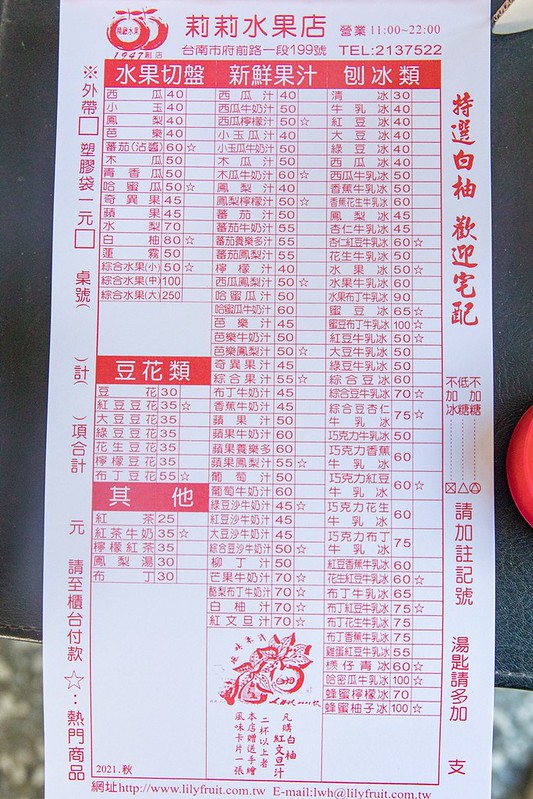 莉莉水果店
營業11:00~22:00
1947創店
台南市府前路一段199號 TEL:2137522
※外帶□ 塑膠袋一元□
桌號(
)計(
)項合計
元
請至櫃台付款
☆:熱門商品
水果切盤
西瓜 40
小玉 40
鳳梨 40
芭樂 40
蕃茄(沾醬) 60 ☆
木瓜 50
青香瓜 50
哈蜜瓜 50 ☆
奇異果 45
蘋果 45
水梨 70
白柚 80 ☆
蓮霧 50
綜合水果(小) 50 ☆
綜合水果(中) 100
綜合水果(大) 250
豆花類
豆花 30
紅豆豆花 35 ☆
大豆豆花 35
綠豆豆花 35
花生豆花 35
檸檬豆花 35
布丁豆花 55 ☆
其他
紅茶 25
紅茶牛奶 35 ☆
檸檬紅茶 35
鳳梨湯 30
布丁 30
2021.秋
新鮮果汁
西瓜汁 40
西瓜牛奶汁 50
西瓜檸檬汁 50 ☆
小玉瓜汁 40
小玉瓜牛奶汁 50
木瓜汁 50
木瓜牛奶汁 60 ☆
鳳梨汁 40
鳳梨檸檬汁 50 ☆
蕃茄汁 50
蕃茄牛奶汁 55
蕃茄養樂多汁 55
蕃茄鳳梨汁 55
檸檬汁 40
西瓜鳳梨汁 50 ☆
哈蜜瓜汁 50
哈蜜瓜牛奶汁 60
芭樂汁 45
芭樂牛奶汁 50
芭樂鳳梨汁 50 ☆
奇異果汁 45
綜合果汁 55 ☆
布丁牛奶汁 45
香蕉牛奶汁 45
蘋果汁 50
蘋果牛奶汁 60
蘋果養樂多 60
蘋果鳳梨汁 55 ☆
葡萄汁 50
葡萄牛奶汁 60
綠豆沙牛奶汁 45 ☆
紅豆沙牛奶汁 45
大豆沙牛奶汁 45
綜合豆沙牛奶汁 50 ☆
柳丁汁 50
芒果牛奶汁 70 ☆
酪梨布丁牛奶汁 70 ☆
白柚汁 70 ☆
紅文旦汁 70 ☆
凡購白柚
紅文旦汁
二杯以上者
本店贈送手繪
風味卡片一張
刨冰類
清冰 30
牛乳冰 40
紅豆冰 40
大豆冰 40
綠豆冰 40
西瓜冰 40
西瓜牛乳冰 50
香蕉牛乳冰 50
香蕉花生牛乳冰 60
鳳梨冰 45
杏仁牛乳冰 45
杏仁紅豆牛乳冰 60 ☆
花生牛乳冰 50
水果冰 50 ☆
水果牛乳冰 60
水果布丁牛乳冰 90
蜜豆冰 65 ☆
蜜豆布丁牛乳冰 100 ☆
紅豆牛乳冰 50 ☆
大豆牛乳冰 50
綠豆牛乳冰 50
綜合豆冰 60
綜合豆牛乳冰 70 ☆
綜合豆杏仁牛乳冰 75 ☆
巧克力牛乳冰 50
巧克力香蕉牛乳冰 60
巧克力紅豆牛乳冰 60 ☆
巧克力花生牛乳冰 60
巧克力布丁牛乳冰 75
紅豆香蕉牛乳冰 60
花生紅豆牛乳冰 60 ☆
布丁牛乳冰 65
布丁紅豆牛乳冰 75 ☆
布丁花生牛乳冰 75
布丁香蕉牛乳冰 75
雞蛋紅豆牛乳冰 55
檨仔青冰 60 ☆
哈密瓜牛乳冰 100 ☆
蜂蜜檸檬冰 70
蜂蜜柚子冰 100 ☆
特選白柚 歡迎宅配
不加冰
低糖
不加糖
請加註記號
湯匙請多加 支
網址http://www.lilyfruit.com.tw E-mail:lwh@lilyfruit.com.tw